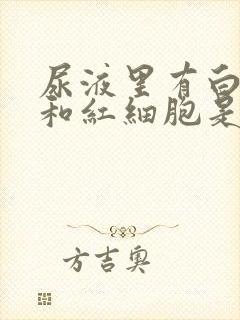 尿液里有白
和紅細胞是
方吉奥